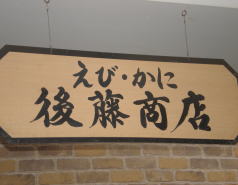 えび・かに
後藤商店